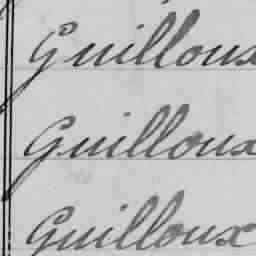 Guilloux
Guilloux
Guilloux